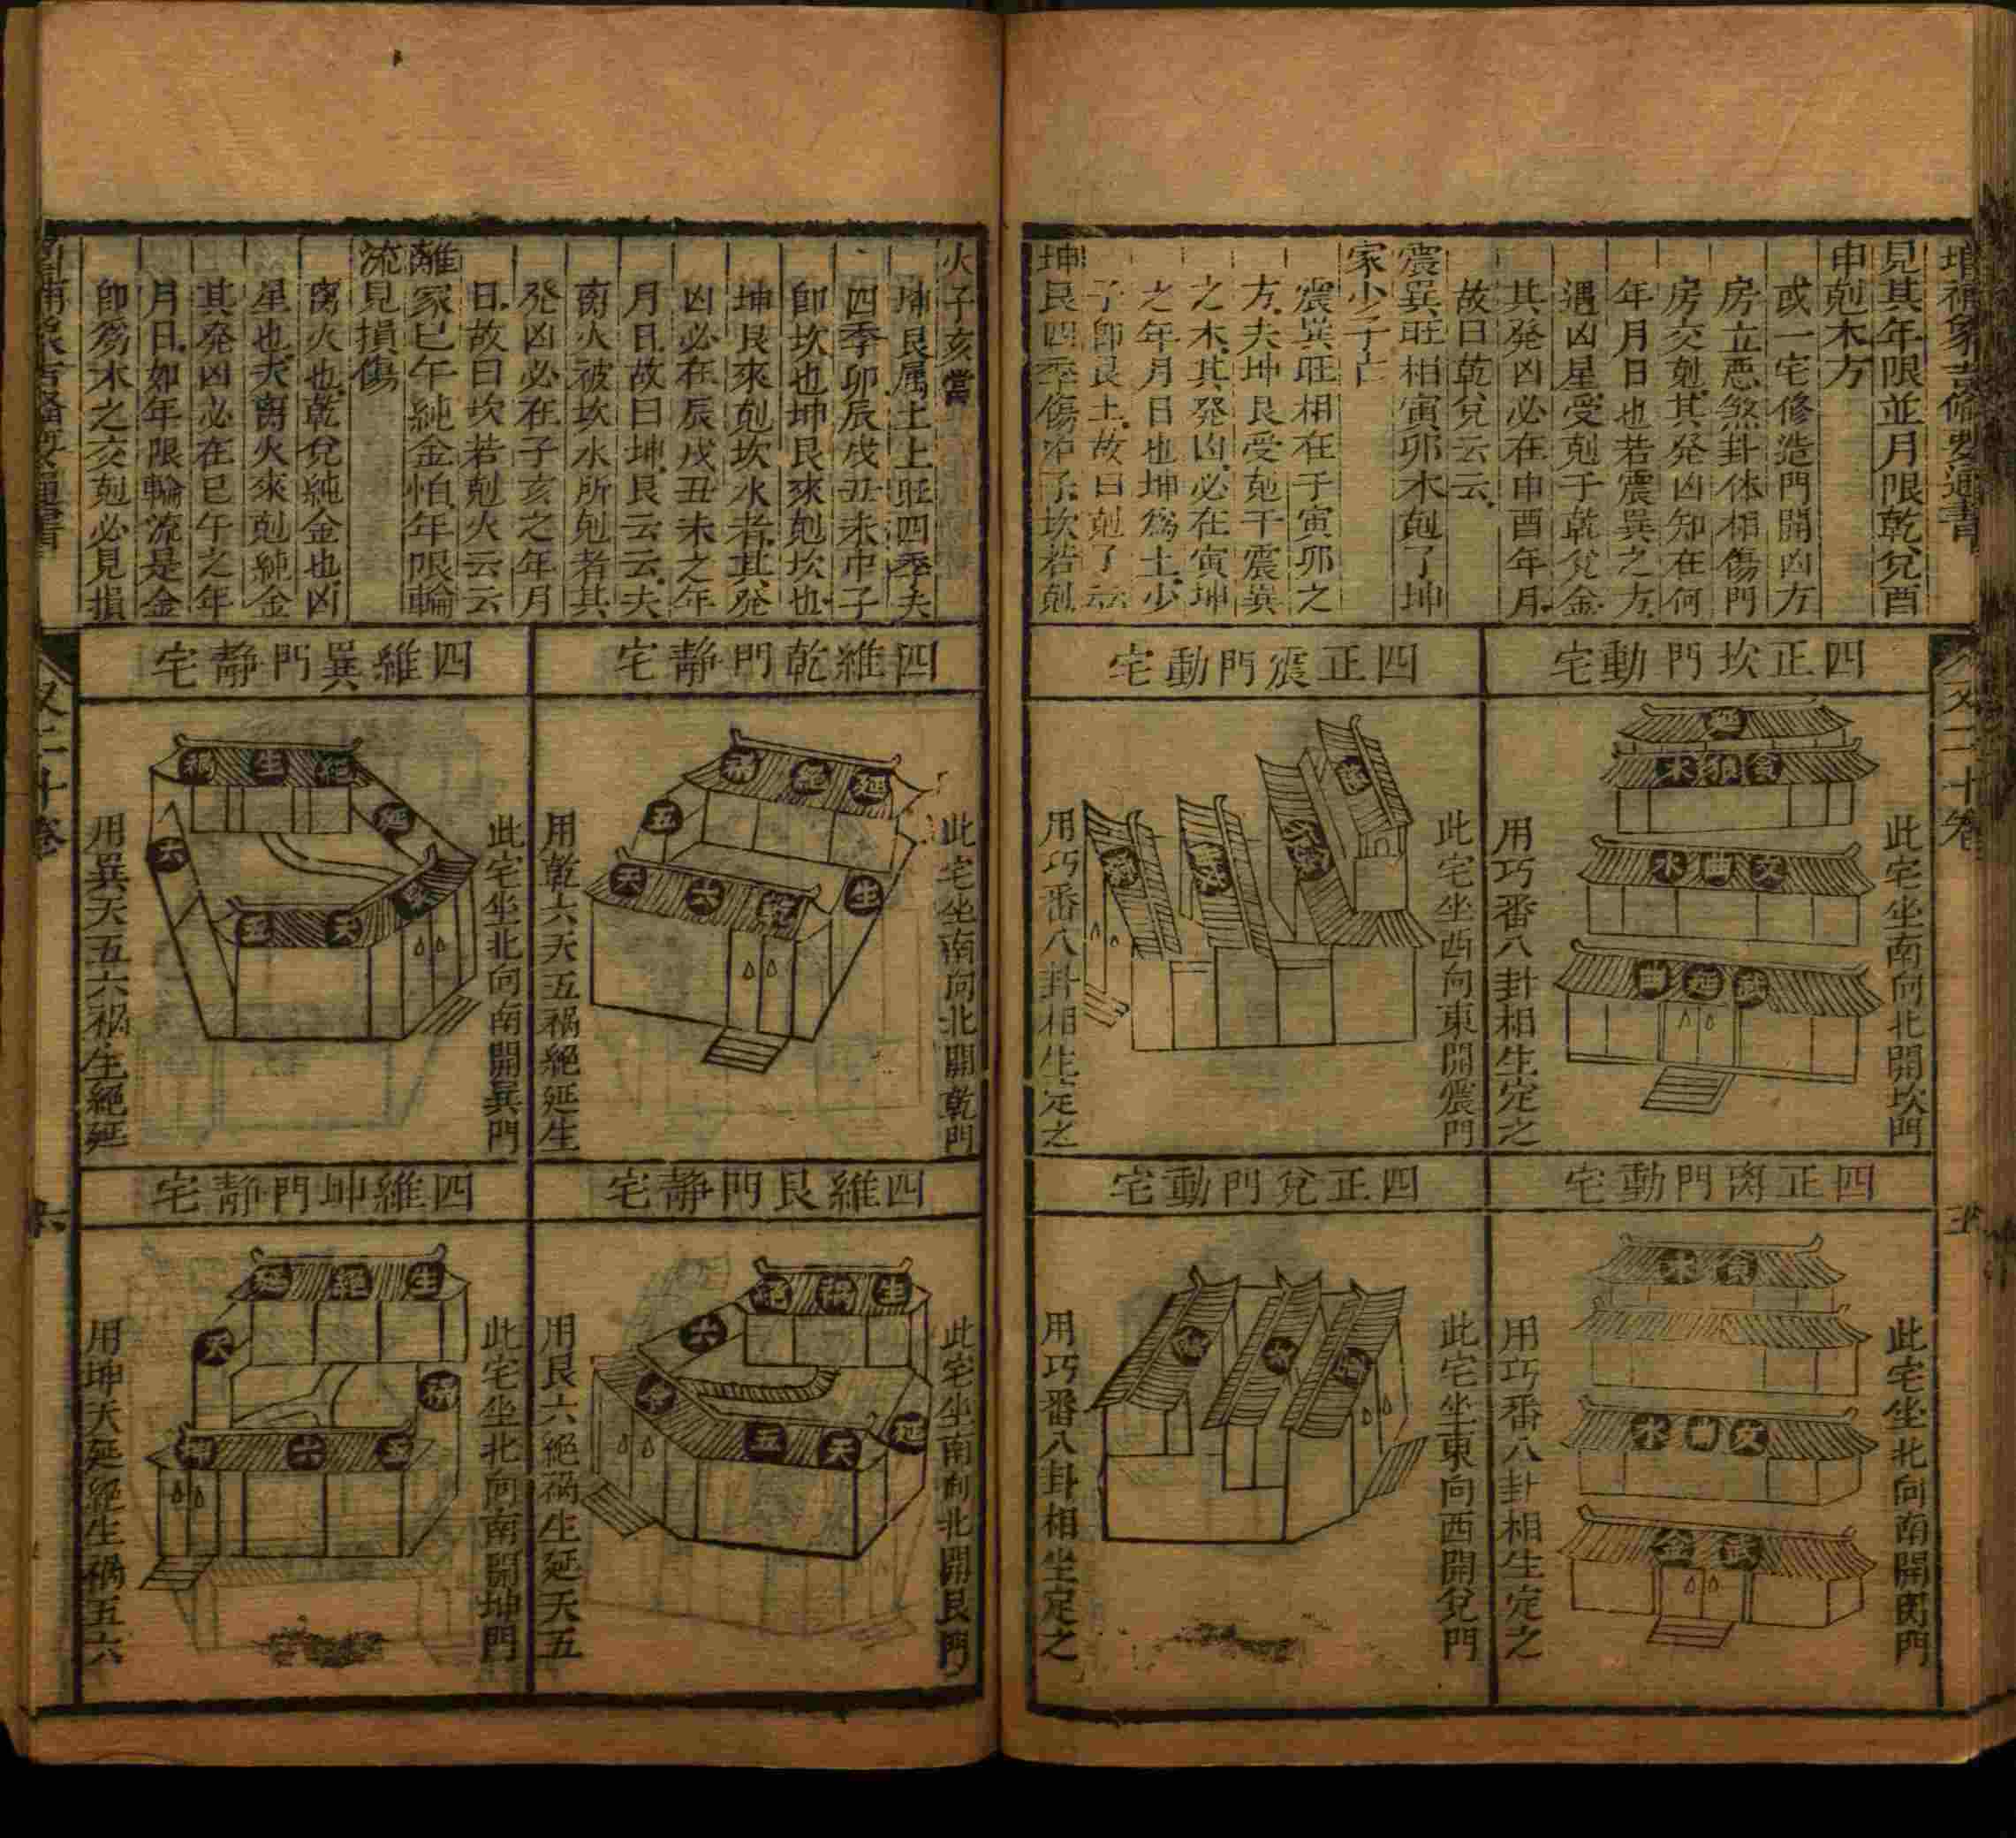 增補象吉備要通書
見其年限並月限乾兌酉
申剋木方
或一宅修造門開凶方
房立惡煞卦体相傷門
房交剋其発凶知在何
年月日也若震巽之方
遇凶星受剋于乾兌金
其発凶必在申酉年月
故曰乾兌云云
震巽旺相寅卯木剋了坤
家小子亡
震巽旺相在于寅卯之
方夫坤艮受剋于震巽
之木其発凶必在寅坤
之年月日也坤爲土少
子卽艮土故曰剋了云
坤艮四季傷中子坎若剋
四正坎門動宅
此宅坐南向北開坎門
延
木 貪
水曲文
曲延武
用巧番八卦相生定之
四正震門動宅
此宅坐西向東開震門
用巧番八卦相生定之
四正离門動宅
此宅坐北向南開离門
木貪
水曲文
金武
用巧番八卦相生定之
四正兌門動宅
此宅坐東向西開兌門
用巧番八卦相生定之
又二十卷
火子亥當
坤艮属土土旺四季夫
四季卯辰戌丑未中子
卽坎也坤艮來剋坎也
坤艮來剋坎水者其発
凶必在辰戌丑未之年
月日故曰坤艮云云夫
离火被坎水所剋者其
発凶必在子亥之年月
日故曰坎若剋火云云
離家巳午純金怕年限輪
流見損傷
离火也乾兌純金也凶
星也夫离火來剋純金
其発凶必在巳午之年
月日如年限輪流是金
卽爲木之交剋必見損
四維乾門静宅
此宅坐南向北開乾門
禍絕延
五
天六乾
生
用乾六天五禍絕延生
四維巽門静宅
此宅坐北向南開巽門
禍生絕
延
六
五天巽
用巽天五六禍生絕延
四維艮門静宅
此宅坐南向北開艮門
絕禍生
六
艮五天
延
用艮六絕禍生延天五
四維坤門静宅
此宅坐北向南開坤門
延絕生
天
禍
坤六五
用坤天延絕生禍五六
又二十卷